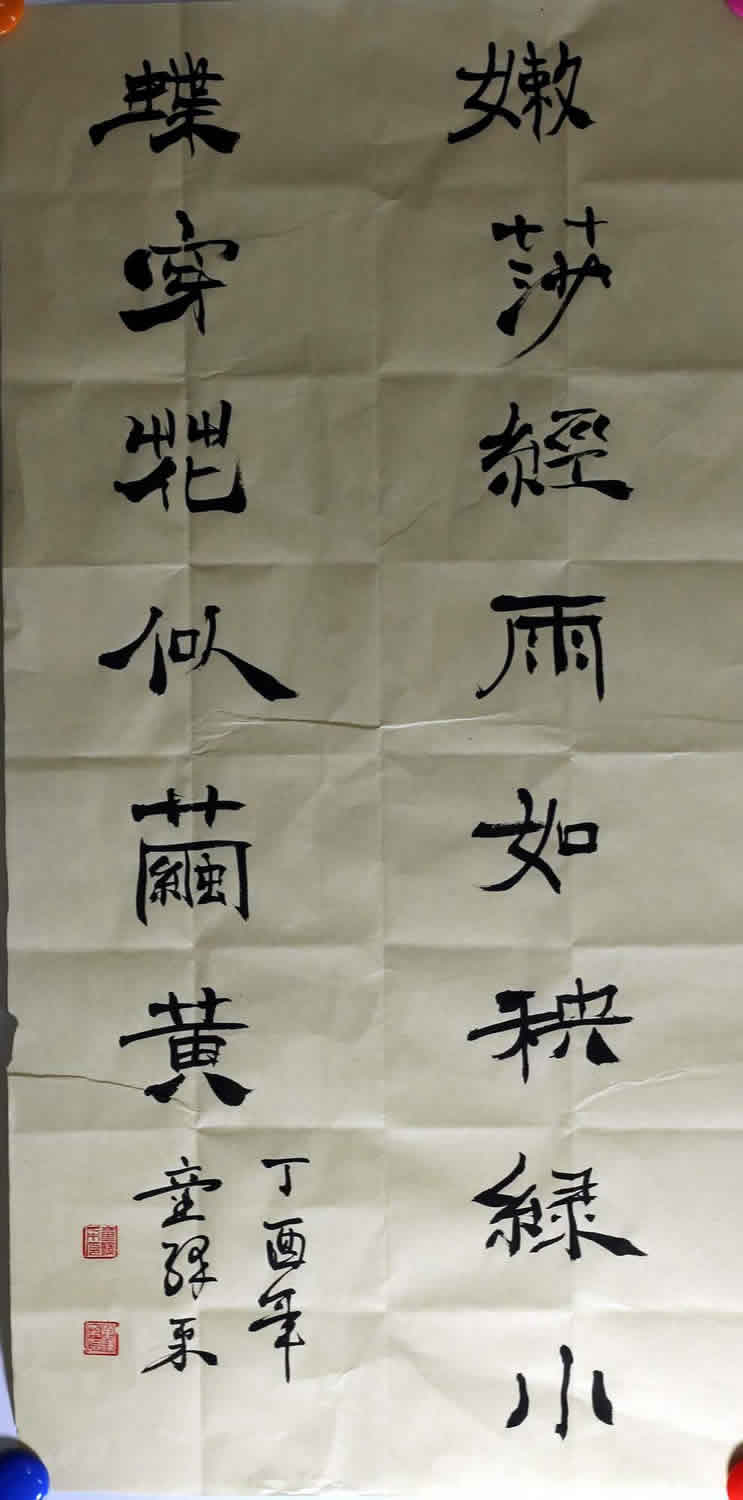 嫩莎經雨如秧綠小
蝶穿花似繭黄
丁酉年
童